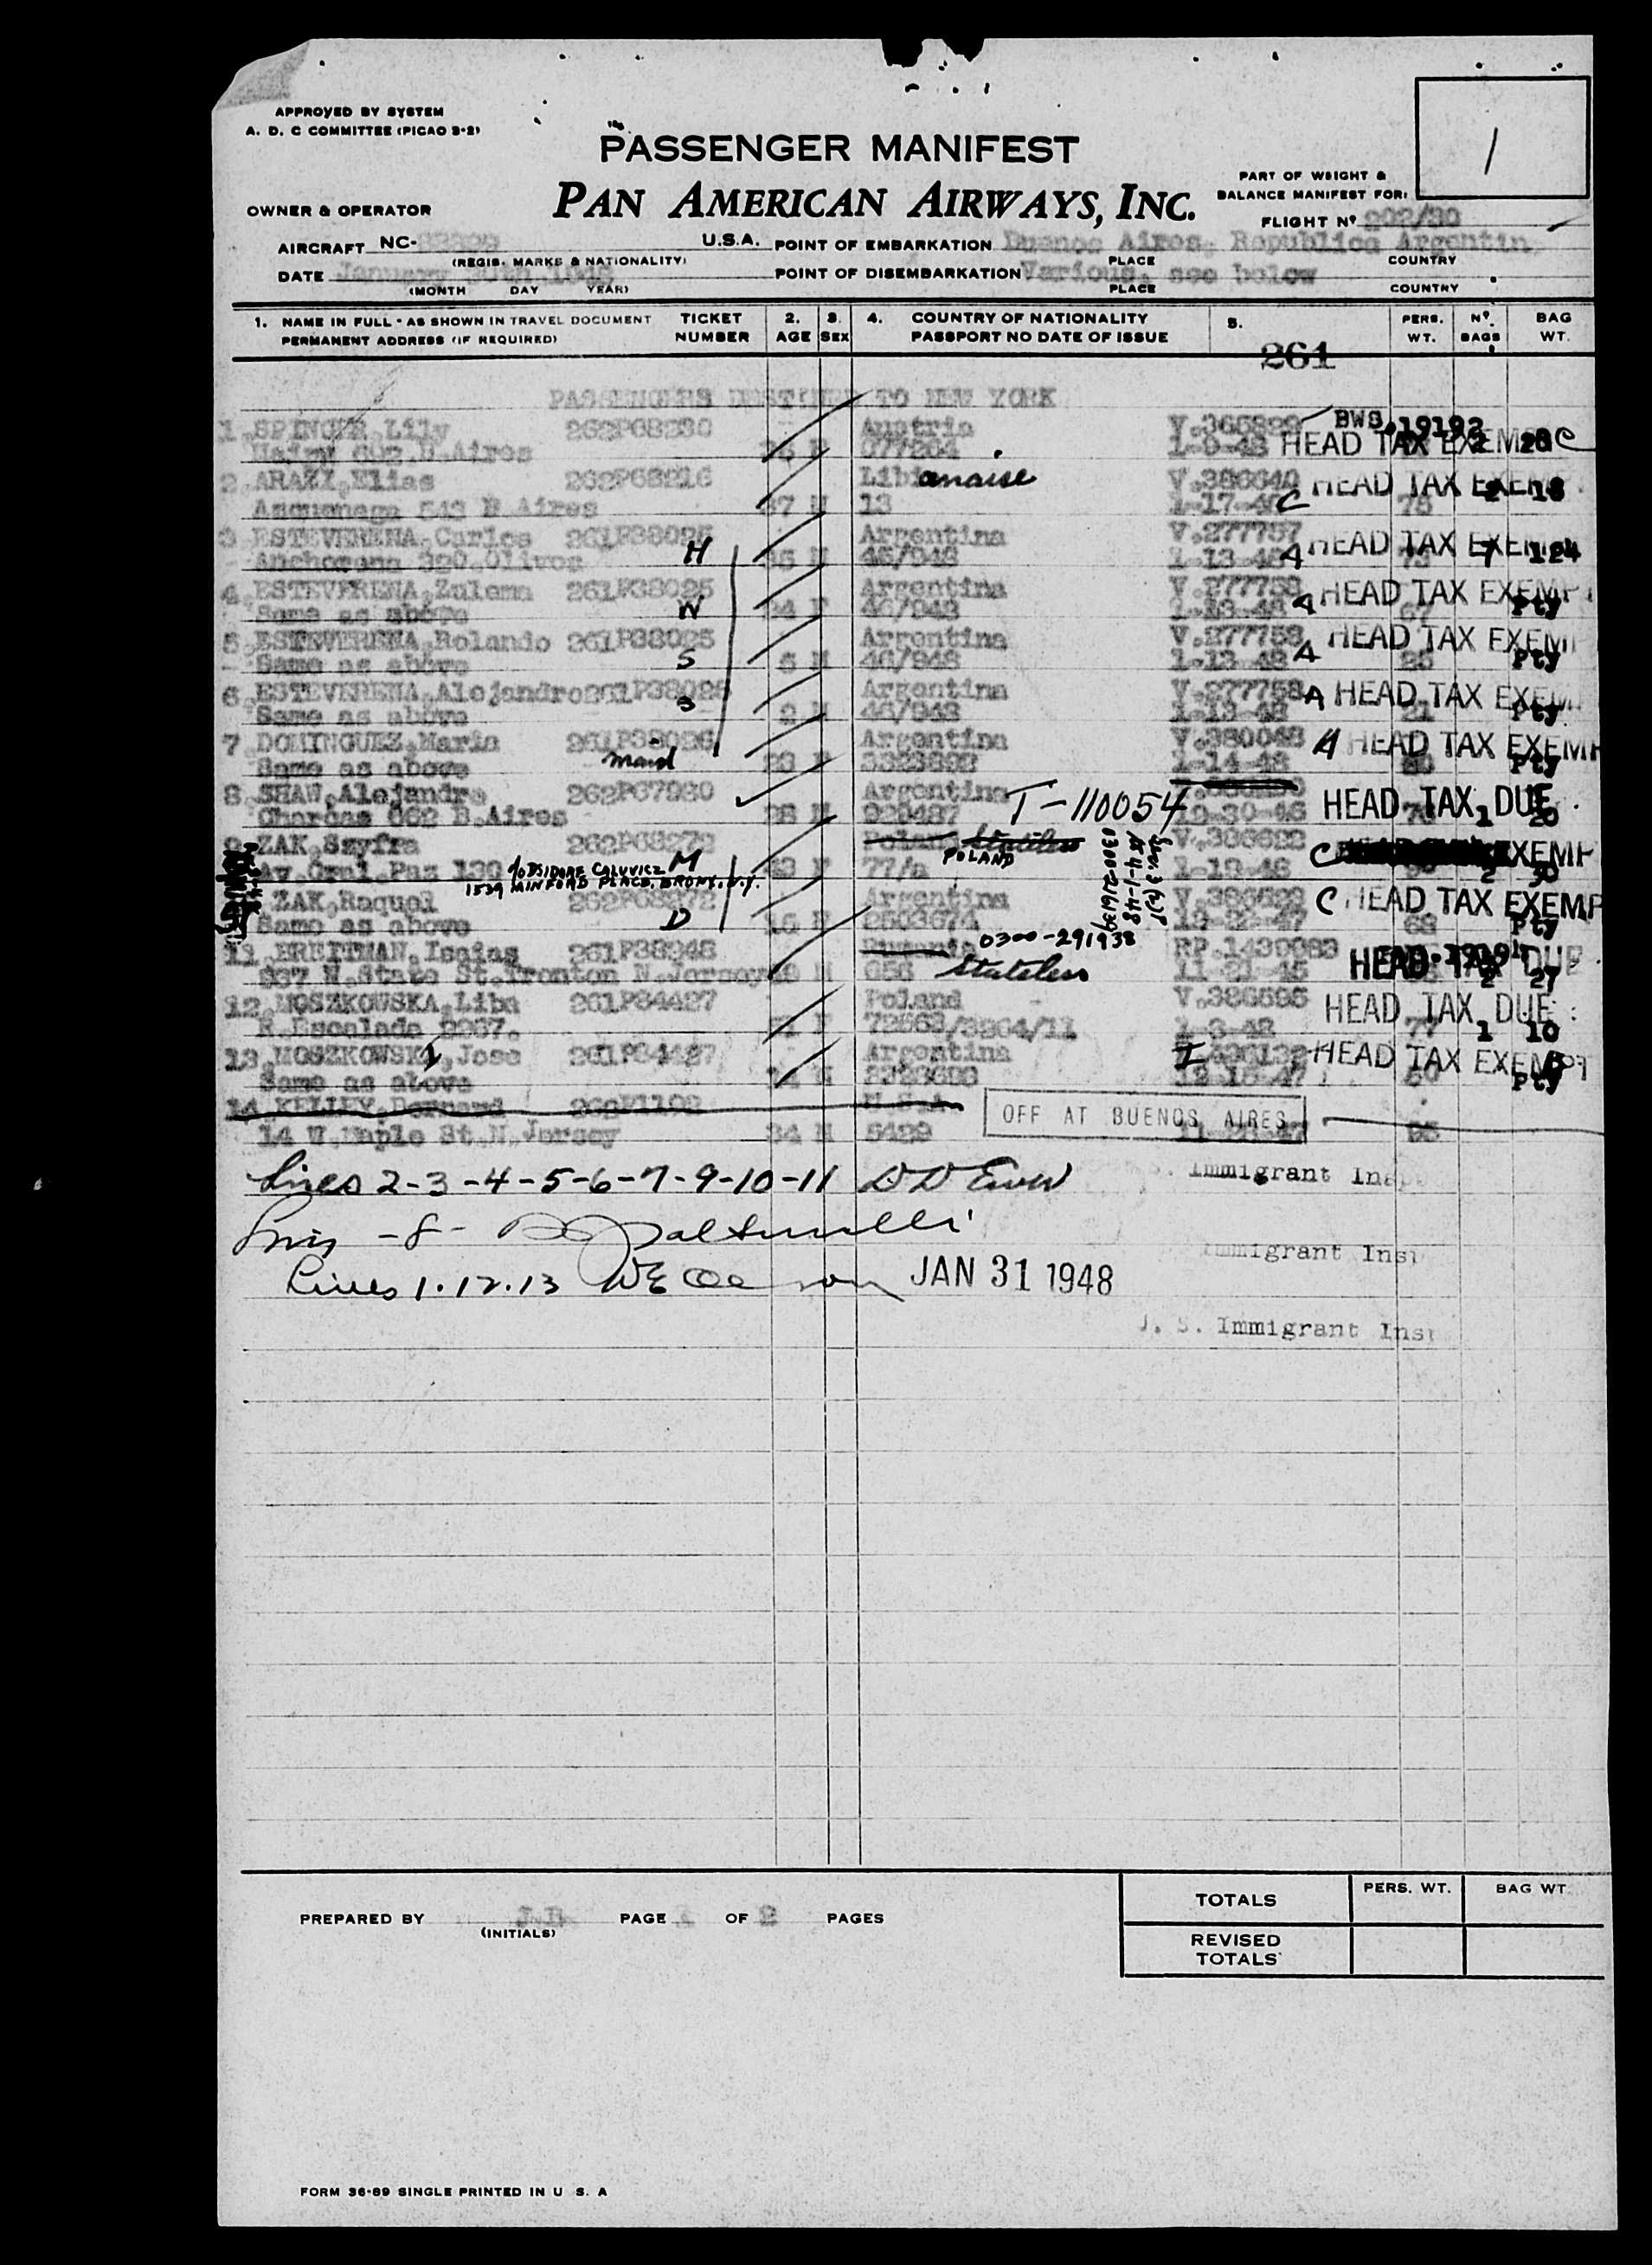 APPROVED BY SYSTEM
A. D. C COMMITTEE (PICAO 3-2)
1
PASSENGER MANIFEST
PAN AMERICAN AIRWAYS, INC.
PART OF WEIGHT &
BALANCE MANIFEST FOR:
OWNER & OPERATOR
FLIGHT Nº 202/30
AIRCRAFT NC- U.S.A. POINT OF EMBARKATION Buenos Aires, Republica Argentin
(REGIS. MARKS & NATIONALITY) PLACE COUNTRY
DATE January 30th 1948 POINT OF DISEMBARKATION Various, see below
(MONTH DAY YEAR) PLACE COUNTRY
1. NAME IN FULL - AS SHOWN IN TRAVEL DOCUMENT TICKET 2. 3. 4. COUNTRY OF NATIONALITY 5. PERS. Nº BAG
PERMANENT ADDRESS (IF REQUIRED) NUMBER AGE SEX PASSPORT NO DATE OF ISSUE WT. BAGS WT.
261
PASSENGERS DESTINED TO NEW YORK
1 Lily 262P68230 Austria V.365829 BWS.19192
602 B.Aires F 077264 1-9-48 HEAD TAX EXEM C
2 ARAZI, Elias 262P68216 Lib anaise V.386640 HEAD TAX EXEMP
Azcuenaga 543 B.Aires 37 M 13 1-17-48 C 75 2 18
3 ESTEVERENA, Carlos 261P38025 Argentina V.277757 HEAD TAX EXEMP
Anchorena 320, Olivos H 35 M 46/948 1-13-48 A 73 7 124
4 ESTEVERENA, Zulema 261P38025 Argentina V.277758 HEAD TAX EXEMP
Same as above W 24 F 46/948 1-13-48 A 67 Pty
5 ESTEVERENA, Rolando 261P38025 Argentina V.277758 HEAD TAX EXEMP
Same as above S 5 M 46/948 1-13-48 A 25 Pty
6 ESTEVERENA, Alejandro 261P38025 Argentina V.277758 A HEAD TAX EXEM
Same as above S 2 M 46/948 1-13-48 21 Pty
7 DOMINGUEZ, Maria 261P38026 Argentina V.380048 A HEAD TAX EXEMP
Same as above maid 23 F 3323892 1-14-48 Pty
8 SHAW, Alejandro 262P67980 Argentina T-110054
Charcas 662 B.Aires 28 M 929487 12-30-46 HEAD TAX DUE 1 20
9 ZAK, Szyfra 262P68272 Poland Stateless V.386622
POLAND
Av. Gral. Paz 130 M 43 F 77/a 1-19-48 C EXEMP 2 30
c/o ISIDORE CALUVICZ
1539 MINFORD PLACE, BRONX, N.Y.
ZAK, Raquel 262P68272 Argentina V.386623 C HEAD TAX EXEMP
Same as above D 15 F 2503674 12-22-47 68 Pty
11 BREITMAN, Isaias 261P38948 Rumania 0300-291938 RP.1439983
937 W. State St. Trenton N. Jersey M 656 Stateless 11-21-45 HEAD TAX DUE 2 27
12 MOSZKOWSKA, Liba 261P84427 Poland V.386595 HEAD TAX DUE
R. Escalada 2967. 51 F 72563/3264/11 1-3-48 77 1 10
13 MOSZKOWSKI, Jose 261P84427 Argentina HEAD TAX EXEMPT
Same as above M 12-16-47 Pty
14 KELLEY, Bernard 262P1192 U.S.A. OFF AT BUENOS AIRES
14 W. Maple St. N. Jersey 34 M 5429 11-26-47 95
Lines 2-3-4-5-6-7-9-10-11
S. Immigrant Insp
-8-
Immigrant Insp
Lines 1.12.13 JAN 31 1948
U. S. Immigrant Insp
TOTALS PERS. WT. BAG WT.
PREPARED BY PAGE 1 OF 2 PAGES
(INITIALS)
REVISED
TOTALS
FORM 36-89 SINGLE PRINTED IN U S. A